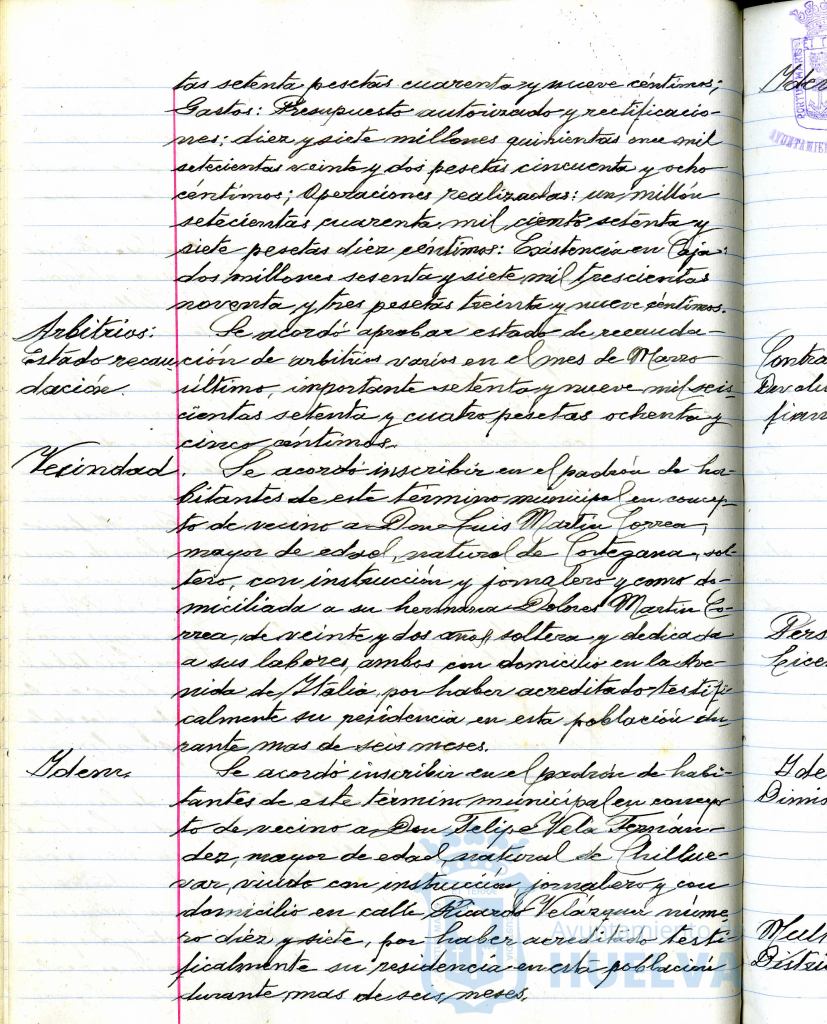 tas setenta pesetas cuarenta y nueve céntimos;
Gastos: Presupuesto autorizado y rectificacio-
nes: diez y siete millones quinientas once mil
setecientas veinte y dos pesetas cincuenta y ocho
céntimos; Operaciones realizadas: un millón
setecientas cuarenta mil ciento setenta y
siete pesetas diez céntimos: Existencia en Caja:
dos millones sesenta y siete mil trescientas
noventa y tres pesetas treinta y nueve céntimos.
Arbitrios:
Estado recau
dación.
Se acordó aprobar estado de recauda-
ción de arbitrios varios en el mes de Marzo
último, importante setenta y nueve mil seis-
cientas setenta y cuatro pesetas ochenta y
cinco céntimos.
Vecindad.
Se acordó inscribir en el padrón de ha-
bitantes de este término municipal en concep-
to de vecino a Don Luis Martín Correa,
mayor de edad, natural de Cortegana, sol-
tero, con instrucción y jornalero y como do-
miciliada a su hermana Dolores Martín Co-
rrea, de veinte y dos años, soltera y dedicada
a sus labores, ambos con domicilio en la Ave-
nida de Italia, por haber acreditado testifi-
calmente su residencia en esta población du-
rante mas de seis meses.
Idem.
Se acordó inscribir en el padrón de habi-
tantes de este término municipal en concep-
to de vecino a Don Felipe Vela Fernán-
dez, mayor de edad, natural de Chillue-
var, viudo con instrucción, jornalero y con
domicilio en calle Ricardo Velázquez núme-
ro diez y siete, por haber acreditado testi-
ficalmente su residencia en esta población
durante mas de seis meses.
Ayuntamiento de
HUELVA
Idem
Contra
Devolu
fian
Pers
Licen
Ide
Dimis
Mult
Distri